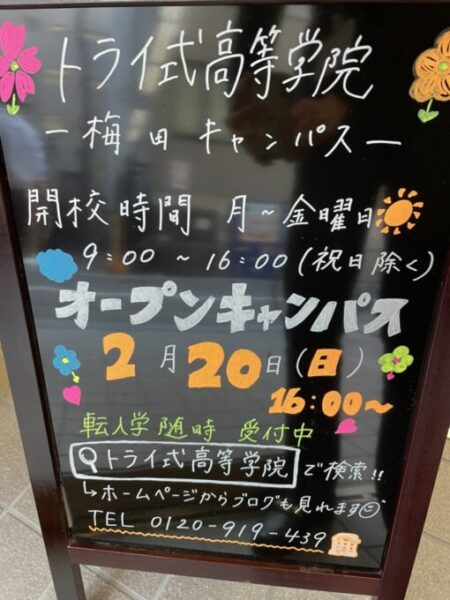 トライ式高等学院
ー梅田キャンパスー
開校時間 月～金曜日
9:00 ～ 16:00 (祝日除く)
オープンキャンパス
2月20日(日)
16:00～
転入学随時 受付中
トライ式高等学院 で検索!!
↳ホームページからブログも見れます
TEL 0120-919-439